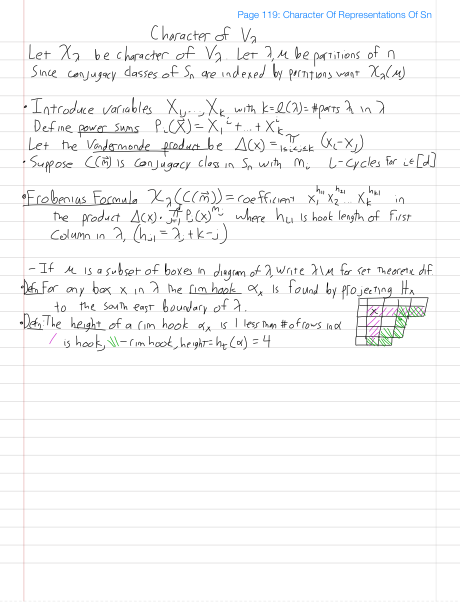 Page 119: Character Of Representations Of Sn
Character of V_λ
Let χ_λ be character of V_λ. Let λ, μ be partitions of n
Since conjugacy classes of S_n are indexed by partitions want χ_λ(μ)
• Introduce variables X_1, ..., X_k with k=ℓ(λ)=#parts λ in λ
Define power sums P_i(X) = X_1^i + ... + X_k^i
Let the Vandermonde product be Δ(x) = ∏_{1≤i<j≤k} (x_i - x_j)
• Suppose C(m⃗) is conjugacy class in S_n with m_i i-cycles for i∈[d]
• Frobenius Formula χ_λ(C(m⃗)) = coefficient x_1^{h_11} x_2^{h_21} ... x_k^{h_k1} in
the product Δ(x) · ∏_{j=1}^d P_j(x)^{m_j} where h_{i,1} is hook length of first
column in λ, (h_{j,1} = λ_j + k - j)
- If μ is a subset of boxes in diagram of λ, write λ\μ for set theoretic dif
• Defn For any box x in λ the rim hook α_x is found by projecting H_x
to the south east boundary of λ.
• Defn: The height of a rim hook α_x is 1 less than # of rows in α
x
is hook, - rim hook, height = ht(α) = 4